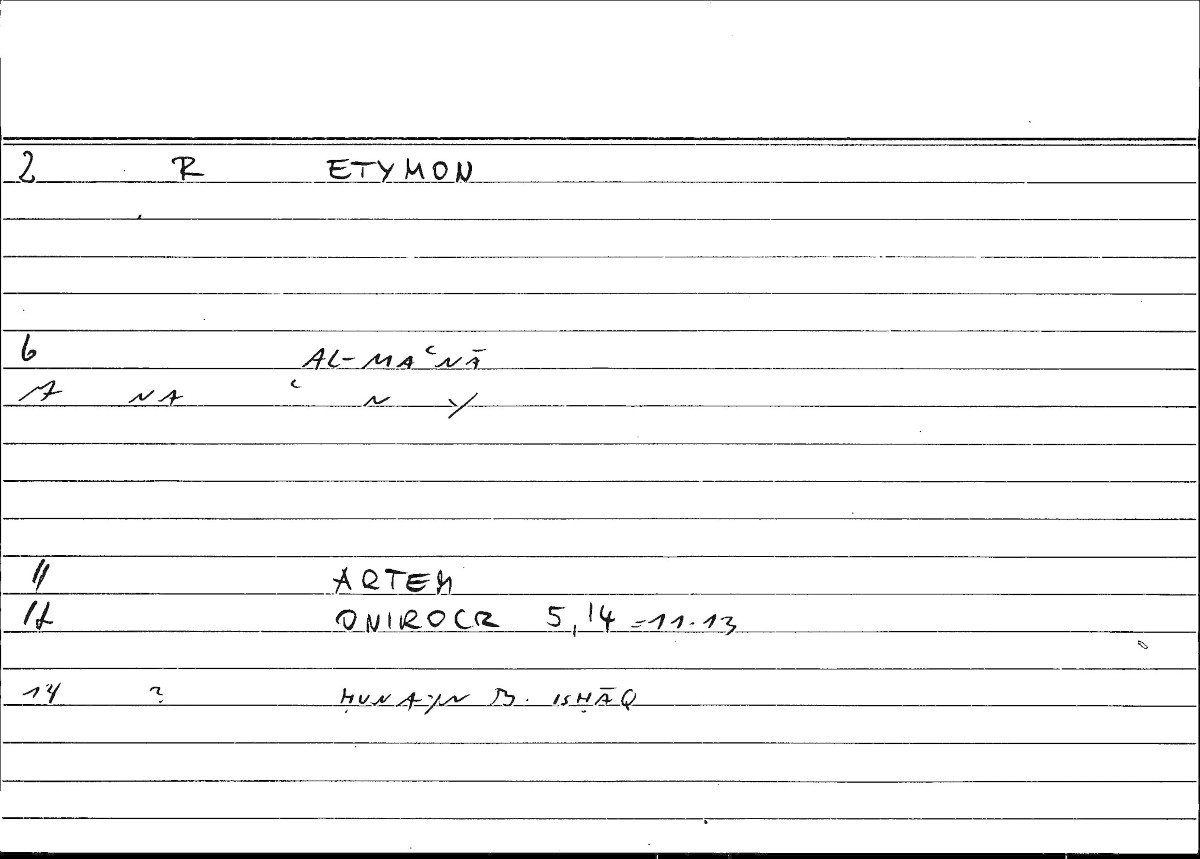 2 R ETYMON
6 AL-MAʿNĀ
7 NA ʿ N Y
11 ARTEM
12 ONIROCR 5,14 = 11.13
14 ? ḤUNAYN B. ISḤĀQ